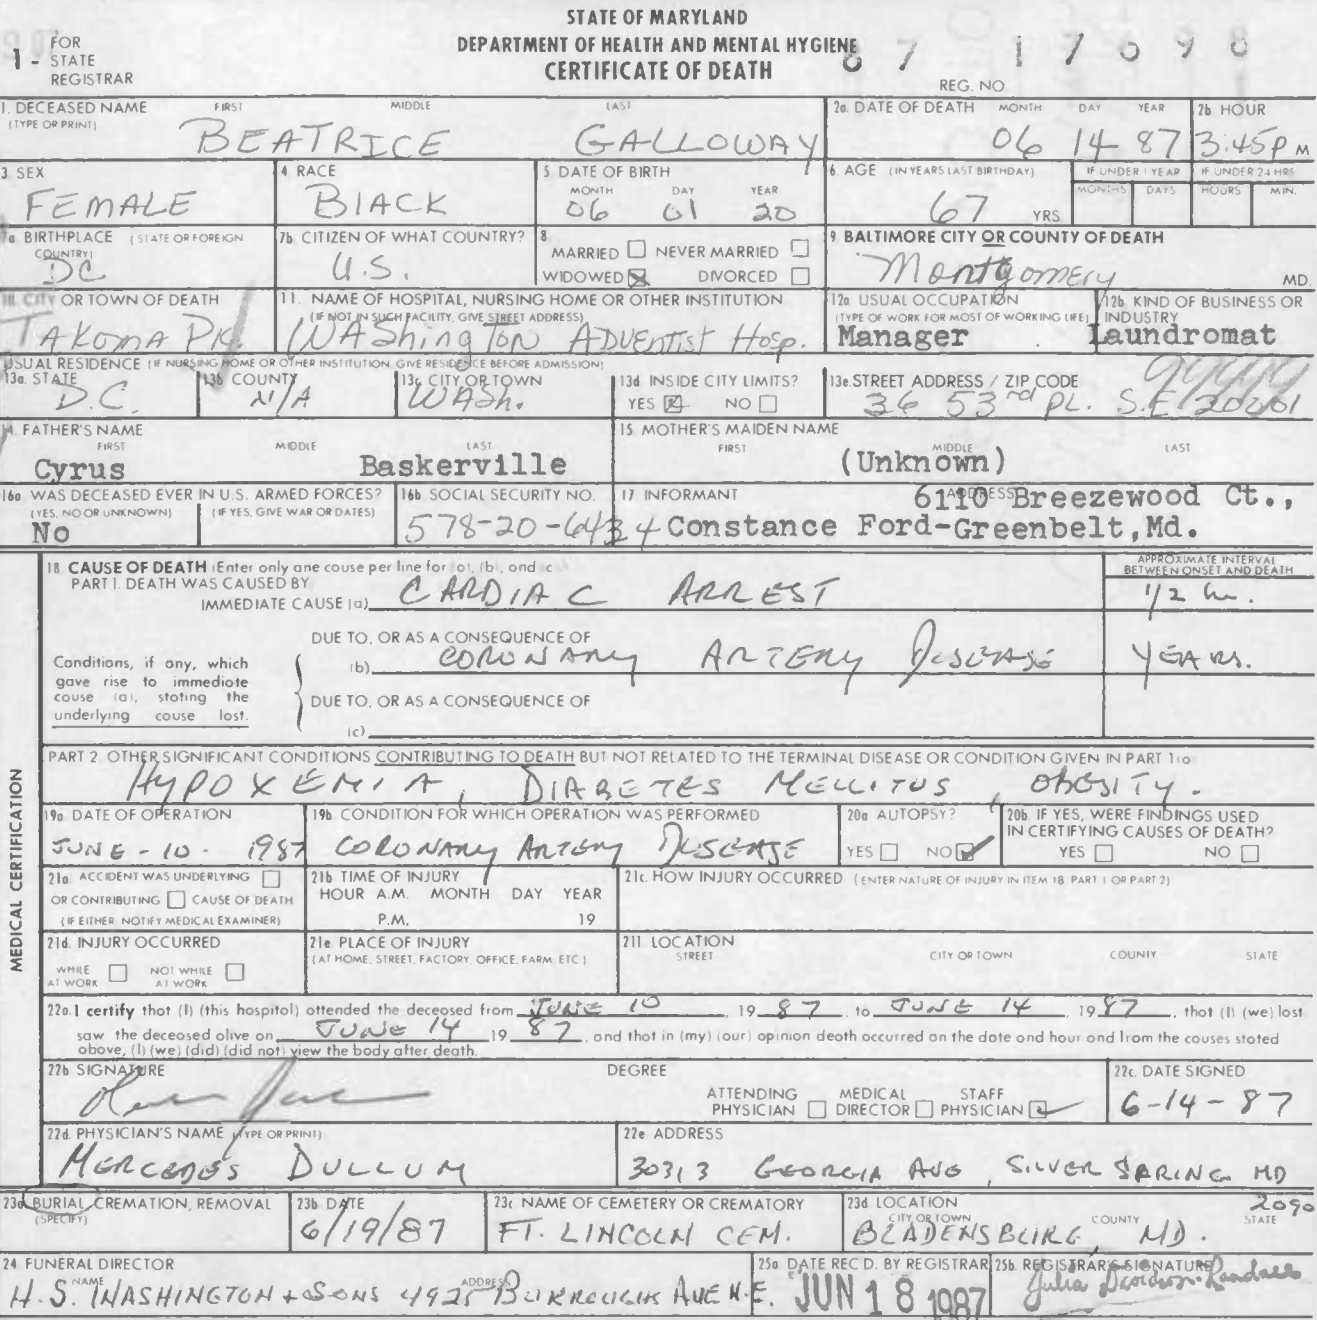 STATE OF MARYLAND
DEPARTMENT OF HEALTH AND MENTAL HYGIENE
CERTIFICATE OF DEATH
1 - FOR STATE REGISTRAR
REG. NO 87 17098
1. DECEASED NAME (TYPE OR PRINT) FIRST MIDDLE LAST
BEATRICE GALLOWAY
2a. DATE OF DEATH MONTH DAY YEAR
06 14 87
2b HOUR
3:45P M
3 SEX
FEMALE
4 RACE
BlACK
5 DATE OF BIRTH MONTH DAY YEAR
06 01 20
6. AGE (IN YEARS LAST BIRTHDAY)
67 YRS
IF UNDER 1 YEAR MONTHS DAYS
IF UNDER 24 HRS HOURS MIN.
7a BIRTHPLACE (STATE OR FOREIGN COUNTRY)
DC
7b CITIZEN OF WHAT COUNTRY?
U.S.
8 MARRIED ☐ NEVER MARRIED ☐
WIDOWED ☒ DIVORCED ☐
9 BALTIMORE CITY OR COUNTY OF DEATH
Montgomery MD.
10. CITY OR TOWN OF DEATH
TAKOMA PK.
11. NAME OF HOSPITAL, NURSING HOME OR OTHER INSTITUTION
(IF NOT IN SUCH FACILITY, GIVE STREET ADDRESS)
WAShingTON ADVENTIST Hosp.
12a USUAL OCCUPATION
(TYPE OF WORK FOR MOST OF WORKING LIFE)
Manager
12b. KIND OF BUSINESS OR INDUSTRY
Laundromat
USUAL RESIDENCE (IF NURSING HOME OR OTHER INSTITUTION GIVE RESIDENCE BEFORE ADMISSION)
13a. STATE
D.C.
13b COUNTY
N/A
13c CITY OR TOWN
WASh.
13d INSIDE CITY LIMITS?
YES ☒ NO ☐
13e. STREET ADDRESS / ZIP CODE
99999
36 53rd PL. S.E. 20201
14 FATHER'S NAME FIRST MIDDLE LAST
Cyrus Baskerville
15. MOTHER'S MAIDEN NAME FIRST MIDDLE LAST
(Unknown)
16a WAS DECEASED EVER IN U.S. ARMED FORCES?
(YES, NO OR UNKNOWN) (IF YES, GIVE WAR OR DATES)
No
16b SOCIAL SECURITY NO.
578-20-6434
17 INFORMANT ADDRESS
6110 Breezewood Ct.,
Constance Ford-Greenbelt,Md.
MEDICAL CERTIFICATION
18 CAUSE OF DEATH (Enter only one cause per line for (a), (b), and (c
PART I. DEATH WAS CAUSED BY:
APPROXIMATE INTERVAL BETWEEN ONSET AND DEATH
IMMEDIATE CAUSE (a) CARDIAC ARREST 1/2 hr.
DUE TO, OR AS A CONSEQUENCE OF
(b) CORONARY ARTERY DISEASE YEARS.
Conditions, if any, which gave rise to immediate cause (a), stating the underlying cause last.
DUE TO, OR AS A CONSEQUENCE OF
(c)
PART 2 OTHER SIGNIFICANT CONDITIONS CONTRIBUTING TO DEATH BUT NOT RELATED TO THE TERMINAL DISEASE OR CONDITION GIVEN IN PART 1(a)
HYPOXEMIA, DIABETES MELLITUS, OBESITY.
19a DATE OF OPERATION
JUNE-10-1987
19b. CONDITION FOR WHICH OPERATION WAS PERFORMED
CORONARY ARTERY DISEASE
20a AUTOPSY?
YES ☐ NO ☑
20b. IF YES, WERE FINDINGS USED IN CERTIFYING CAUSES OF DEATH?
YES ☐ NO ☐
21a. ACCIDENT WAS UNDERLYING ☐
OR CONTRIBUTING ☐ CAUSE OF DEATH
(IF EITHER, NOTIFY MEDICAL EXAMINER)
21b TIME OF INJURY
HOUR A.M. MONTH DAY YEAR
P.M. 19
21c. HOW INJURY OCCURRED (ENTER NATURE OF INJURY IN ITEM 18 PART 1 OR PART 2)
21d. INJURY OCCURRED
WHILE AT WORK ☐ NOT WHILE AT WORK ☐
21e PLACE OF INJURY
(AT HOME, STREET, FACTORY, OFFICE, FARM, ETC)
21f LOCATION
STREET CITY OR TOWN COUNTY STATE
22a. I certify that (I) (this hospital) attended the deceased from JUNE 10, 1987, to JUNE 14, 1987, that (I) (we) lost
saw the deceased alive on JUNE 14 1987, and that in (my) (our) opinion death occurred on the date and hour and from the causes stated
above, (I) (we) (did) (did not) view the body after death.
22b SIGNATURE
DEGREE
ATTENDING PHYSICIAN ☐ MEDICAL DIRECTOR ☐ STAFF PHYSICIAN ☑
22c. DATE SIGNED
6-14-87
22d. PHYSICIAN'S NAME (TYPE OR PRINT)
MERCEDES DULLUM
22e ADDRESS
30313 GEORGIA AVE, SILVER SPRING MD
2090
23a BURIAL, CREMATION, REMOVAL (SPECIFY)
23b DATE
6/19/87
23c NAME OF CEMETERY OR CREMATORY
FT. LINCOLN CEM.
23d LOCATION CITY OR TOWN COUNTY STATE
BLADENSBURG, MD.
24 FUNERAL DIRECTOR NAME ADDRESS
H.S. WASHINGTON + SONS 4925 BURROUGHS AVE N.E.
25a DATE REC'D. BY REGISTRAR
JUN 18 1987
25b. REGISTRAR'S SIGNATURE
Julia Davidson-Randall